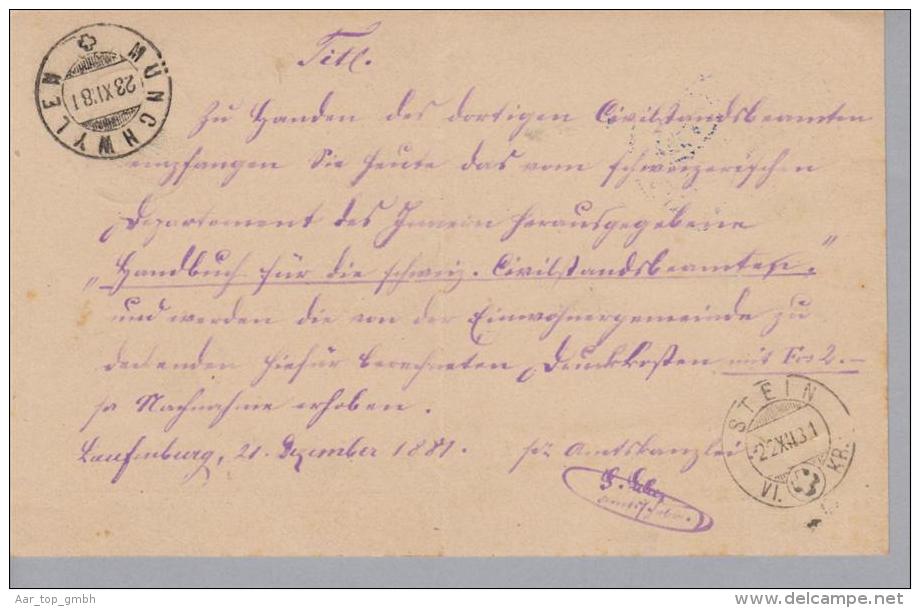 Titl.
MÜNCHWYLEN
23 XII 81
Zu Handen des dortigen Civilstandsbeamten
empfangen Sie heute das vom schweizerischen
Departement des Innern herausgegebene
„Handbuch für die schweiz. Civilstandsbeamten“
und werden die von der Einwohnergemeinde zu
deckenden hiefür berechneten Druckkosten mit Frs 2.—
pr Nachnahme erhoben.
Laufenburg, 21. Dezember 1881. pr Amtskanzlei
STEIN
22 XII 81
VI. KR.
Aar_top_gmbh
www.delcampe.net